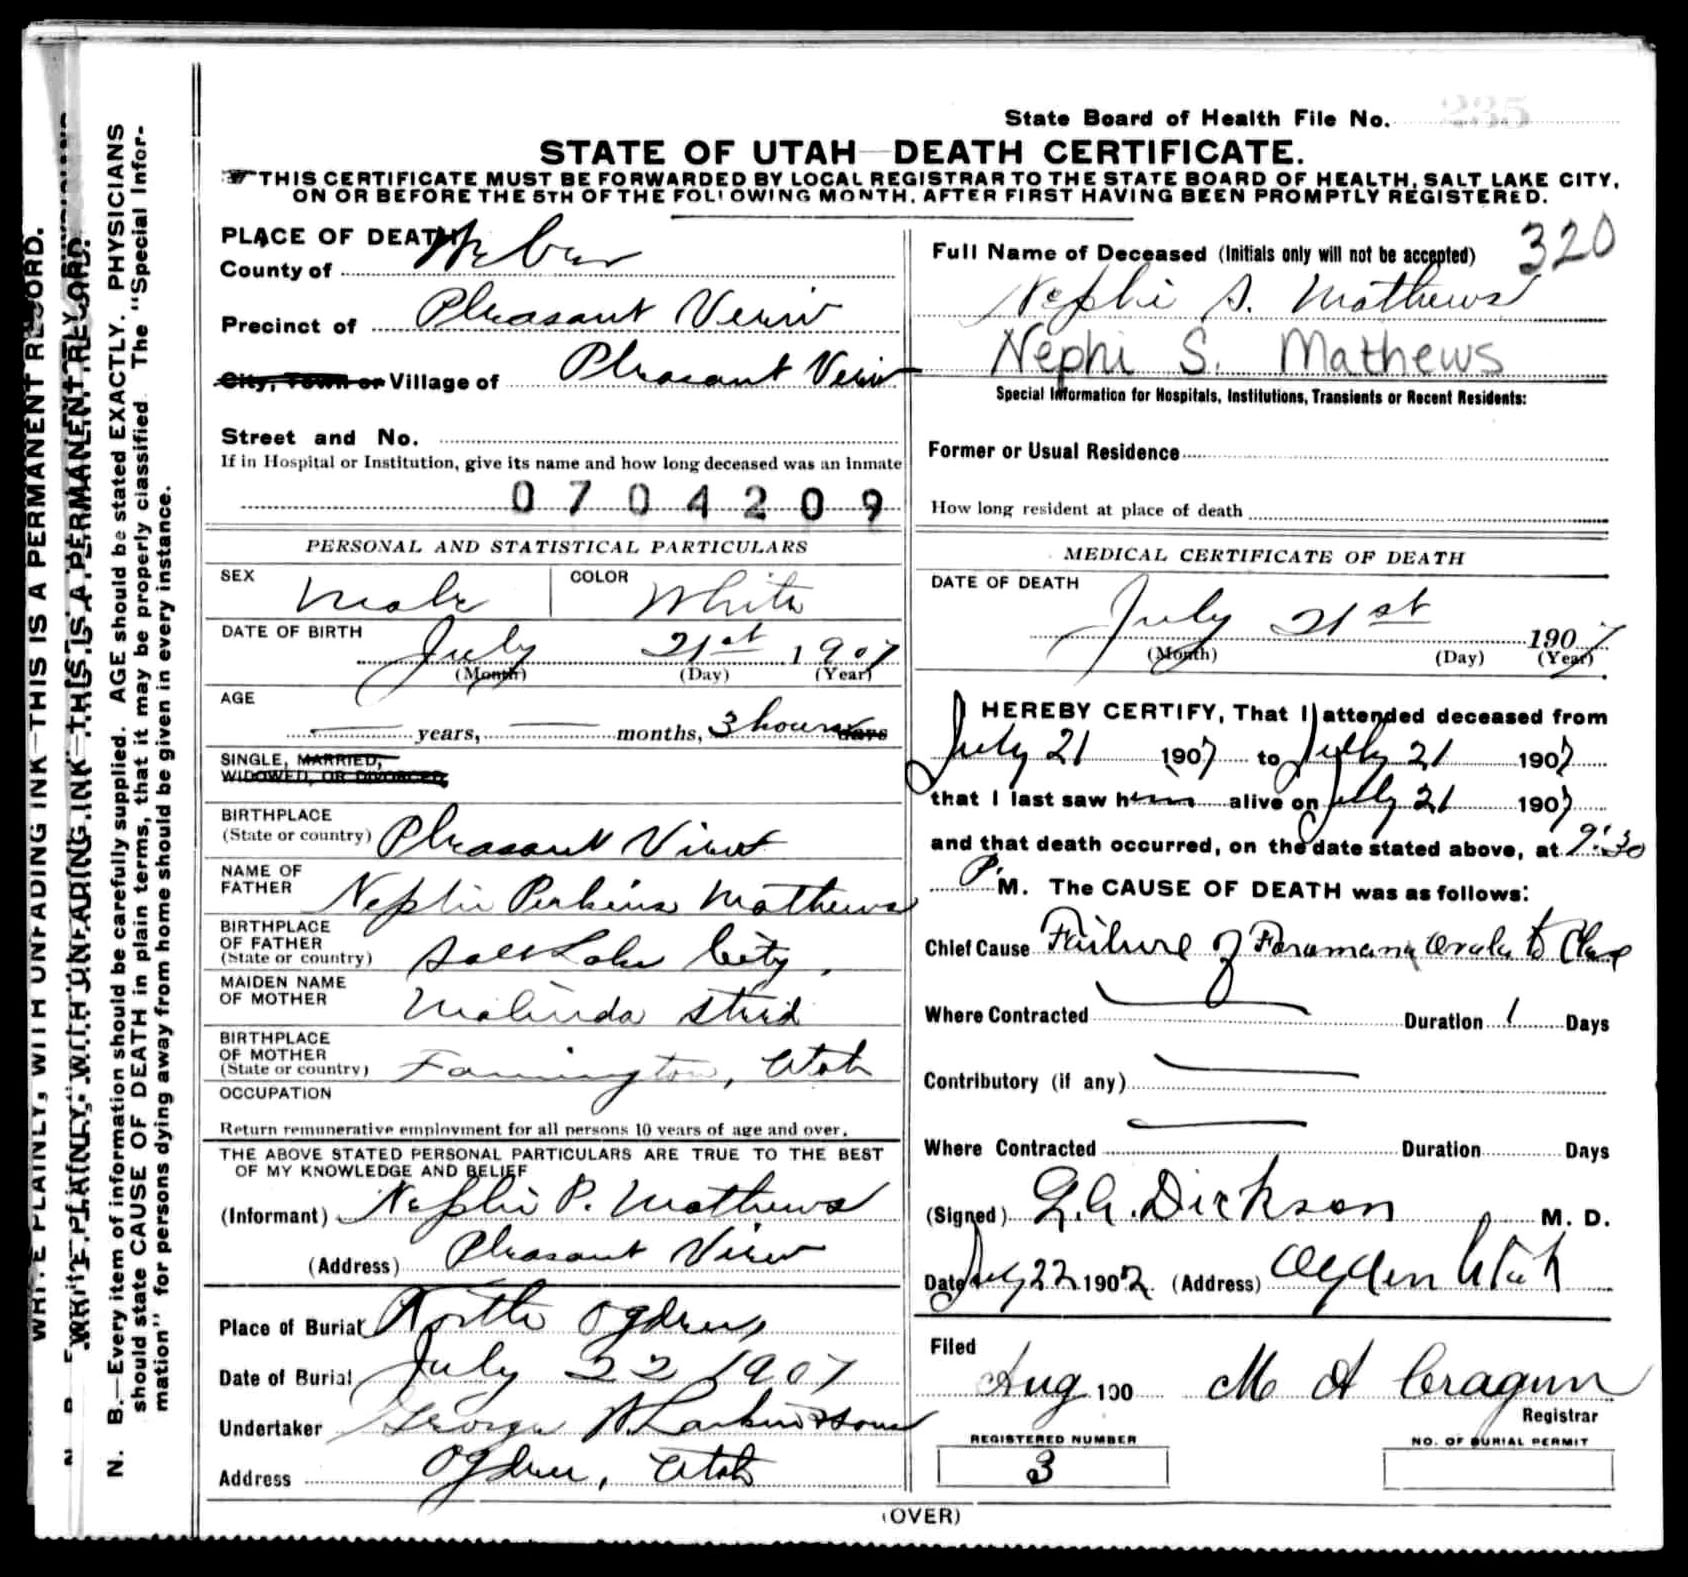 State Board of Health File No. 235
STATE OF UTAH—DEATH CERTIFICATE.
THIS CERTIFICATE MUST BE FORWARDED BY LOCAL REGISTRAR TO THE STATE BOARD OF HEALTH, SALT LAKE CITY,
ON OR BEFORE THE 5TH OF THE FOLLOWING MONTH, AFTER FIRST HAVING BEEN PROMPTLY REGISTERED.
WRITE PLAINLY, WITH UNFADING INK—THIS IS A PERMANENT RECORD.
WRITE PLAINLY, WITH UNFADING INK—THIS IS A PERMANENT RECORD.
N. B.—Every item of information should be carefully supplied. AGE should be stated EXACTLY. PHYSICIANS
should state CAUSE OF DEATH in plain terms, that it may be properly classified. The "Special Infor-
mation" for persons dying away from home should be given in every instance.
PLACE OF DEATH
County of Weber
Precinct of Pleasant View
City, Town or Village of Pleasant View
Street and No.
If in Hospital or Institution, give its name and how long deceased was an inmate
0704209
PERSONAL AND STATISTICAL PARTICULARS
SEX Male COLOR White
DATE OF BIRTH July 21st 1907
(Month) (Day) (Year)
AGE
years, months, 3 hours days
SINGLE, MARRIED,
WIDOWED, OR DIVORCED
BIRTHPLACE
(State or country) Pleasant View
NAME OF
FATHER Nephi Perkins Mathews
BIRTHPLACE
OF FATHER
(State or country) Salt Lake City,
MAIDEN NAME
OF MOTHER Malinda
BIRTHPLACE
OF MOTHER
(State or country) Farmington, Utah
OCCUPATION
Return remunerative employment for all persons 10 years of age and over.
THE ABOVE STATED PERSONAL PARTICULARS ARE TRUE TO THE BEST
OF MY KNOWLEDGE AND BELIEF
(Informant) Nephi P. Mathews
(Address) Pleasant View
Place of Burial North Ogden,
Date of Burial July 22 1907
Undertaker George W. Larkin & Sons
Address Ogden, Utah
320
Full Name of Deceased (Initials only will not be accepted)
Nephi S. Mathews
Nephi S. Mathews
Special Information for Hospitals, Institutions, Transients or Recent Residents:
Former or Usual Residence
How long resident at place of death
MEDICAL CERTIFICATE OF DEATH
DATE OF DEATH
July 21st 1907
(Month) (Day) (Year)
I HEREBY CERTIFY, That I attended deceased from
July 21 1907 to July 21 1907
that I last saw him alive on July 21 1907
and that death occurred, on the date stated above, at 9:30
P. M. The CAUSE OF DEATH was as follows:
Chief Cause Failure of to Close
Where Contracted Duration 1 Days
Contributory (if any)
Where Contracted Duration Days
(Signed) G. A. Dickson M. D.
Date July 22 1907 (Address) Ogden Utah
Filed
Aug 190 M A Cragun
Registrar
REGISTERED NUMBER
3
NO. OF BURIAL PERMIT
(OVER)